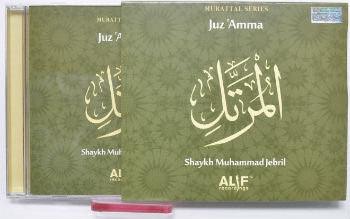 MURATTAL SERIES
Juz 'Amma
المرتل
Shaykh Muh
ALIF
recordings
MURATTAL SERIES
Juz 'Amma
المرتل
Shaykh Muhammad Jebril
ALIF
recordings